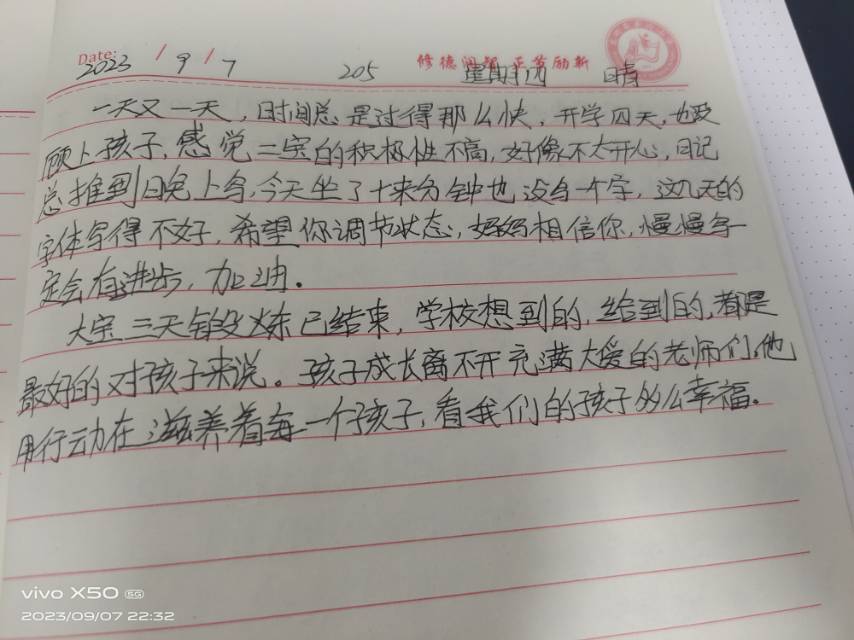 Date:
2023 / 9 / 7 205 修德 正 励新 星期四 晴
一天又一天,时间总是过得那么快,开学四天,也没
顾上孩子,感觉二宝的积极性不高,好像不太开心,日记
总推到晚上写,今天坐了十来分钟也没写一个字,这几天的
字体写得不好,希望你调节状态,妈妈相信你,慢慢写一
定会有进步,加油。
大宝三天锻炼已结束,学校想到的,给到的,都是
最好的对孩子来说。孩子成长离不开充满大爱的老师们,他
用行动在滋养着每一个孩子,看我们的孩子多么幸福。
vivo X50 5G
2023/09/07 22:32